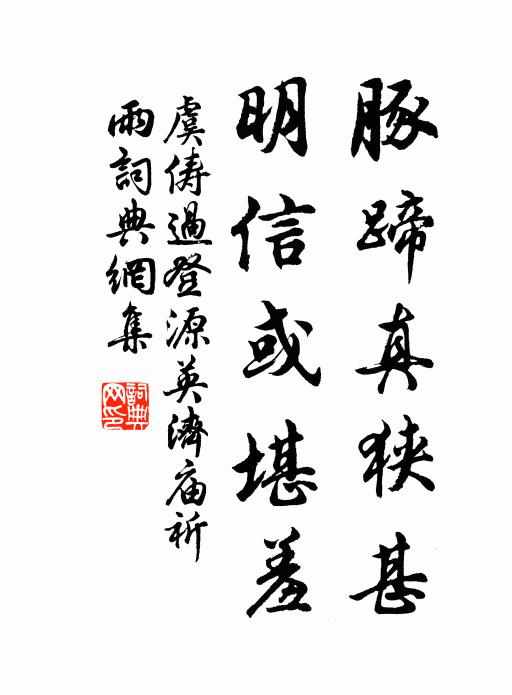 豚蹄真狹甚
明信或堪羞
虞儔過登源英濟庙祈
雨詞典網集
詞典网印